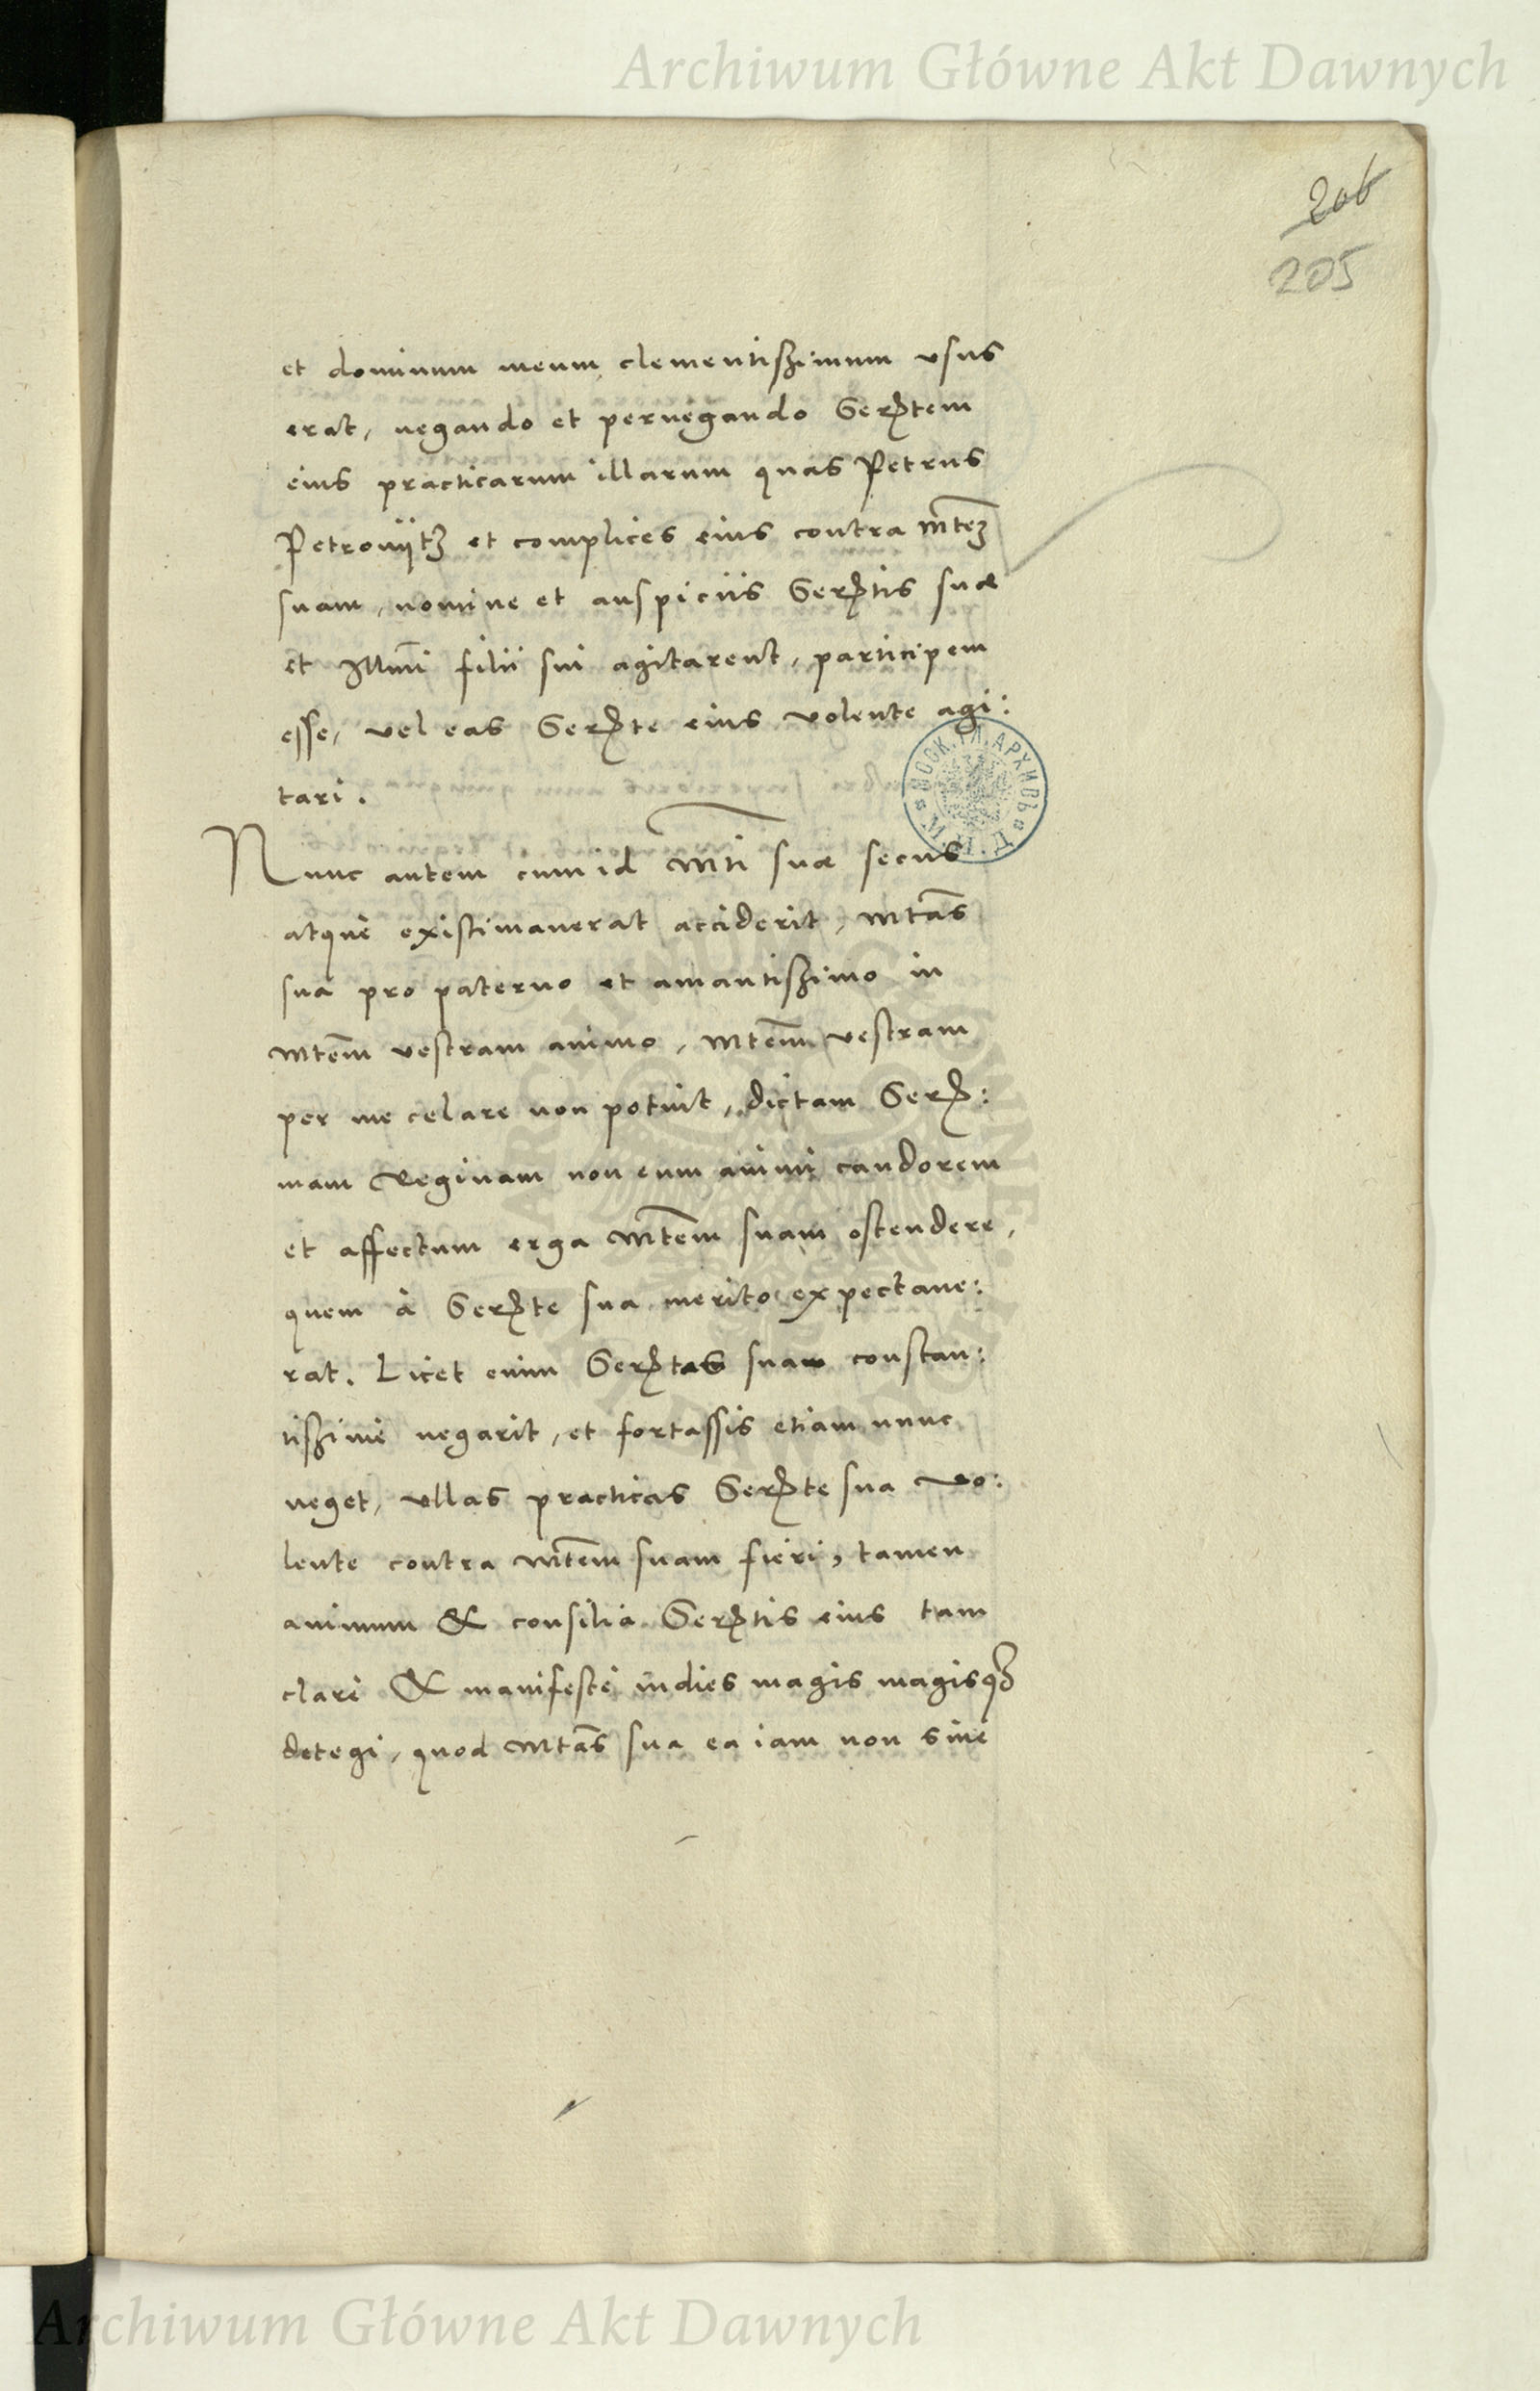 Archiwum Główne Akt Dawnych
206
205
et dominum meum clementissimum usus
erat, negando et pernegando Serᵗtem
eius practicarum illarum quas Petrus
Petroviitz et complices eius contra Mtez
suam, nomine et auspiciis Serᵗtis suæ
et Illmi filii sui agitarent, participem
esse, vel eas Serᵗte eius volente agi:
tari.
Nunc autem cum id Mti suæ secus
atque existimaverat acciderit, Mtas
sua pro paterno et amantissimo in
Mtem vestram animo, Mtem vestram
per me celare non potuit, dictam Serᵗ:
mam Reginam non eum animi candorem
et affectum erga Mtem suam ostendere,
quem à Serᵗte sua merito expectave:
rat. Licet enim Serᵗtas sua constan:
tissimè negarit, et fortassis etiam nunc
neget, ullas practicas Serᵗte sua vo:
lente contra Mtem suam fieri, tamen
animum & consilia Serᵗtis eius tam
clarè & manifestè indies magis magisq3
detegi, quod Mtas sua ea iam non sine
Archiwum Główne Akt Dawnych